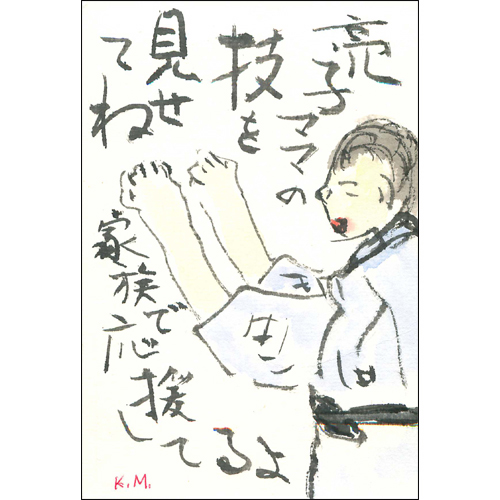 亮子ママの
技を
見せ
てね
家族で応援してるよ
K.M.